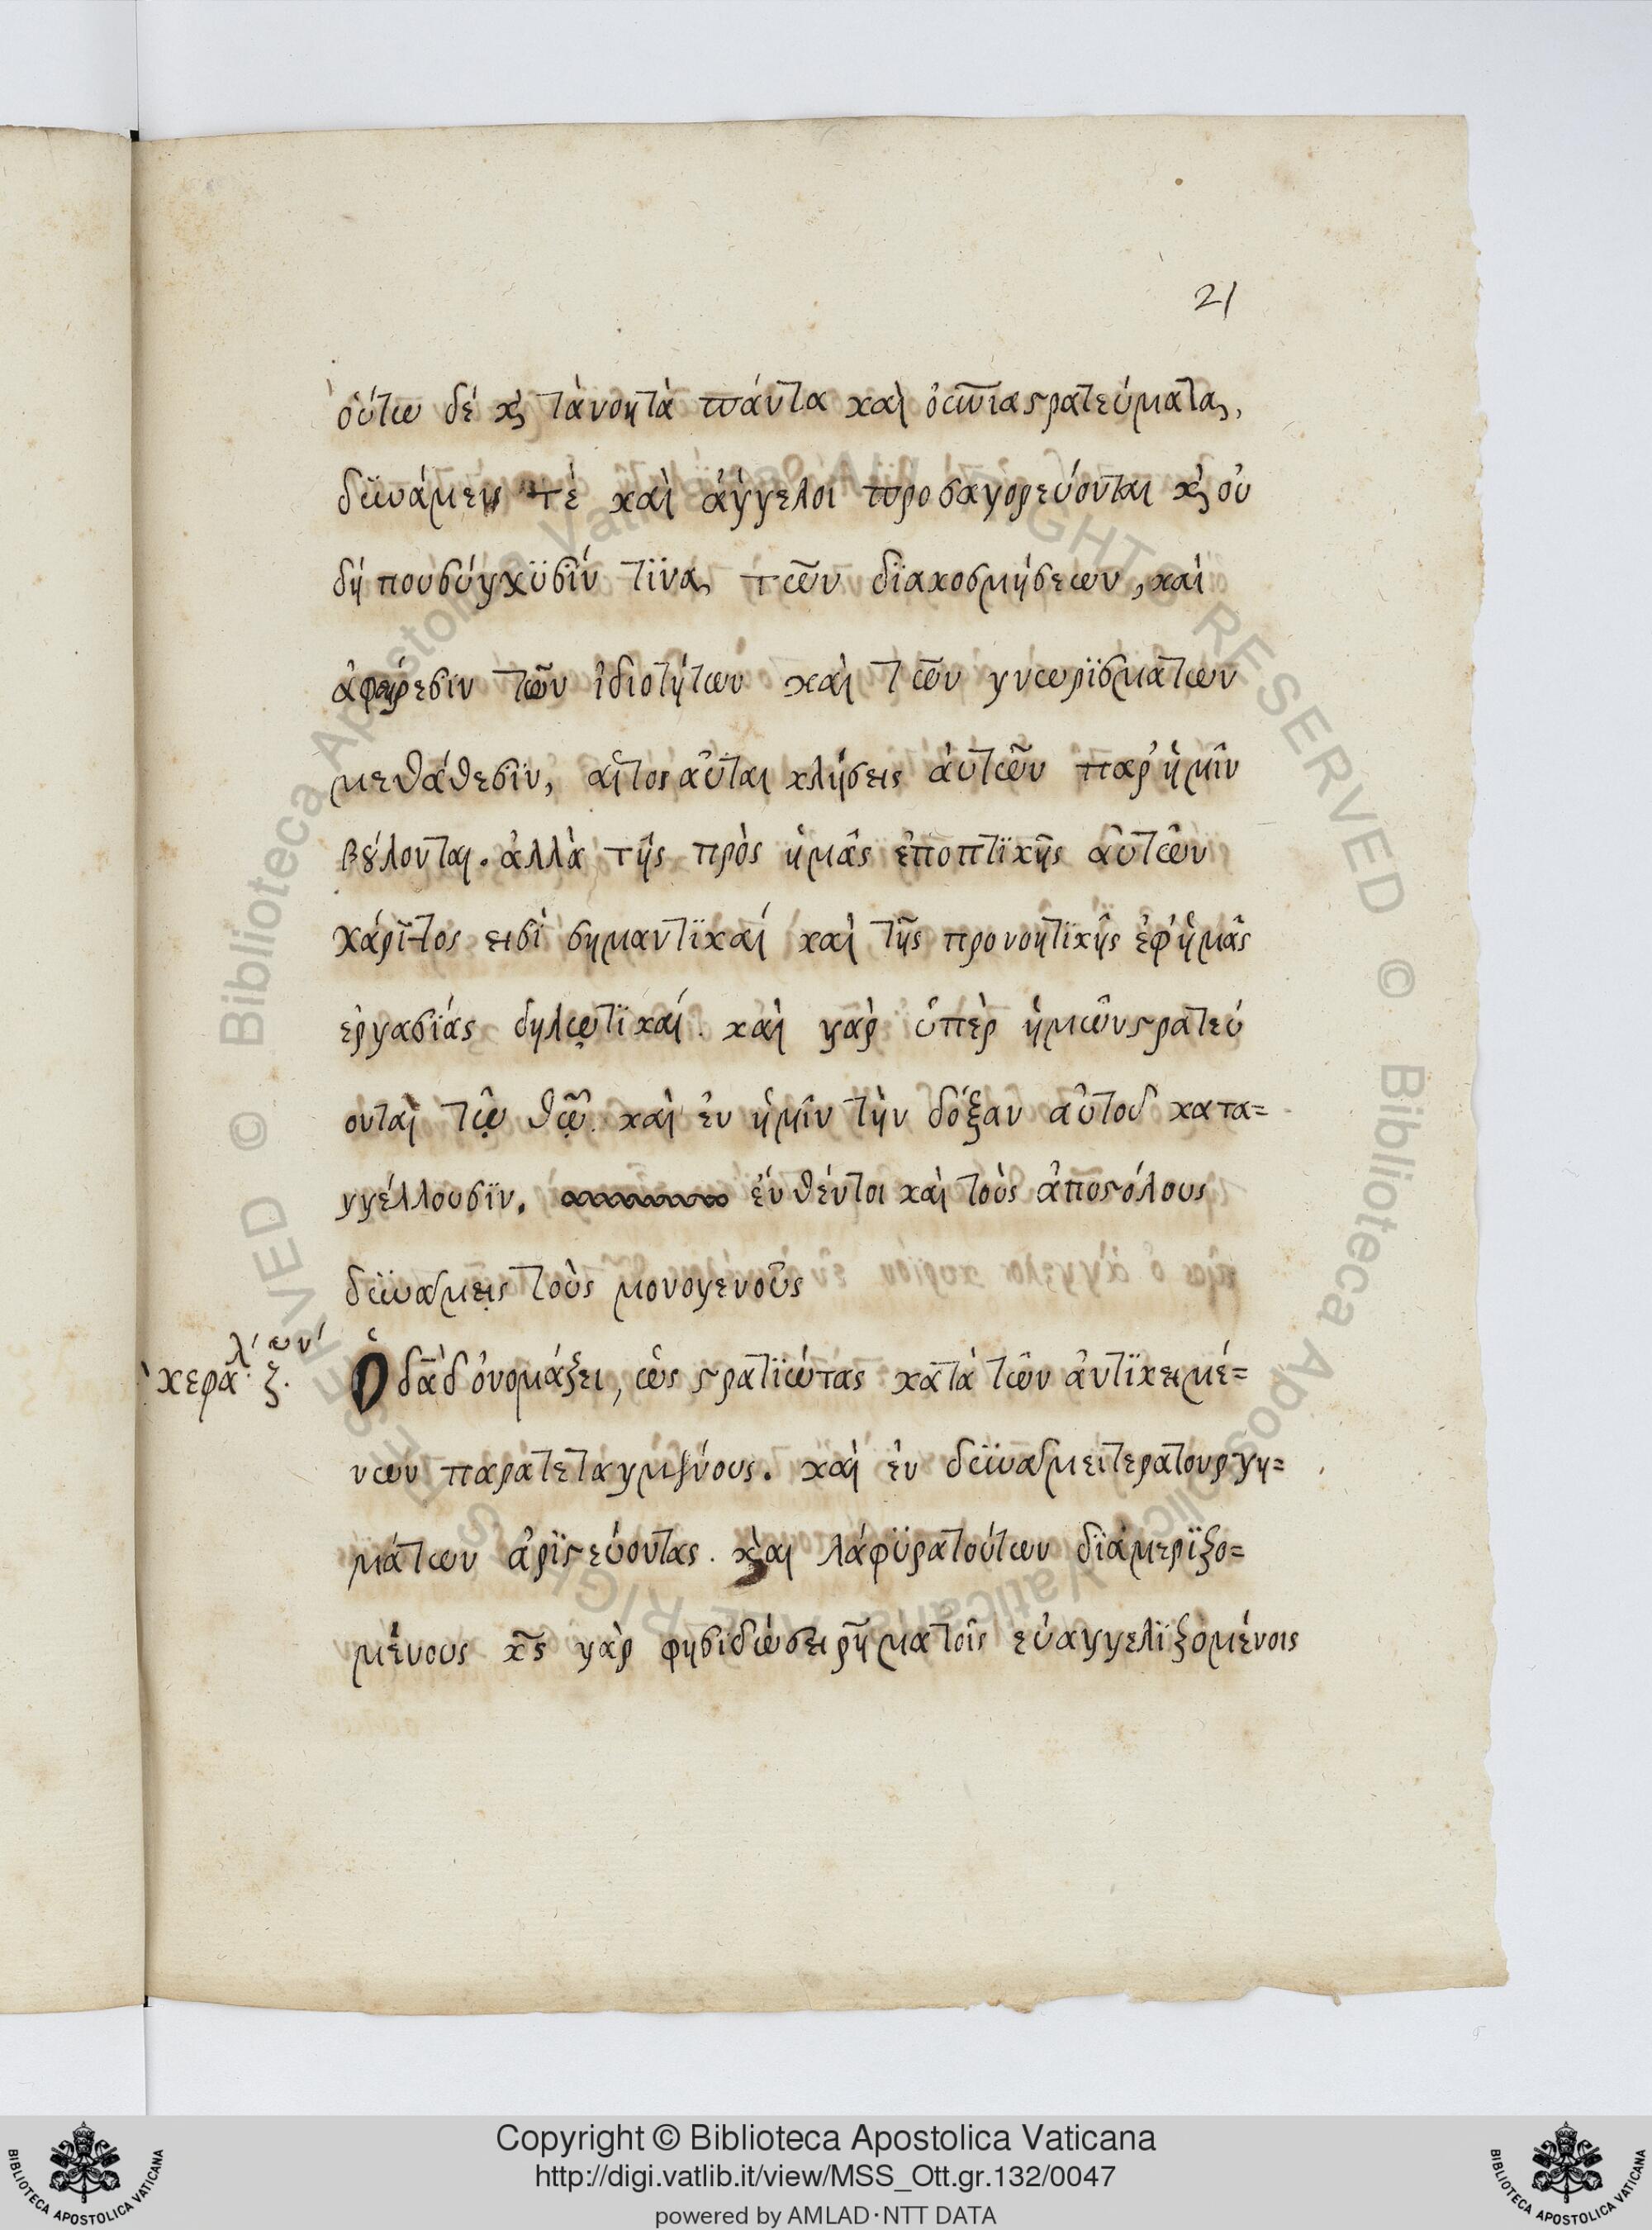 21
ὁύτω δέ κ τὰνοητὰ πάντα καὶ ὀσῶπιαστρατεύματα,
δϋνάμεις τέ καὶ ἀγγελοι προσαγορεύονται κ οὐ
δή πουσύγχϋσϊν τϊνα τῶν δϊακοσμήσεων, καὶ
ἀφαίρεσιν τῶν ἰδιοτήτων καὶ τῶν γνωρϊσμάτων
μεθάθεσϊν, αἵτοσαὗται κλήσεις ἀυτῶν παρἡμῖν
βȣ́λονται. ἀλλὰ τῆς πρὸς ἡμᾶς ἐποπτϊκῆς αὐτῶν
χάρϊτος εισὶ σημαντϊκαί καὶ τῆς προνοητϊκῆς ἐφἡμᾶς
εργασϊάς δηλωτϊκαί. καὶ γὰρ ὑπὲρ ἡμῶνστρατεύ
ονταὶ τῷ θῷ. καὶ ἐν ἡμῖν τὴν δόξαν αὐτοῦ κατα=
γγέλλουσϊν. ἐνθέντοι καὶ τοὺς ἀποστόλους
δϋνάμεις τοὺς μονογενοῦς
κεφαλ´ων´ ζ.
Ὁ δᾱδ ὀνομάζει, ὡς στρατϊώτας κατὰ τῶν ἀντϊκειμέ=
νων παρατεταγμένους. καὶ ἐν δϋνάμειτερατουργη=
μάτων ἀρϊστεύοντας. καὶ λάφϋρατούτων δϊαμερϊζο=
μένους κ̄ς γὰρ φησιδώσειρῆματοῖς εὐαγγελϊζομένοις
Copyright © Biblioteca Apostolica Vaticana
http://digi.vatlib.it/view/MSS_Ott.gr.132/0047
powered by AMLAD·NTT DATA
BIBLIOTECA APOSTOLICA VATICANA
BIBLIOTECA APOSTOLICA VATICANA
© Biblioteca Apostolica Vaticana ALL RIGHTS RESERVED © Biblioteca Apostolica Vaticana ALL RIGHTS RESERVED